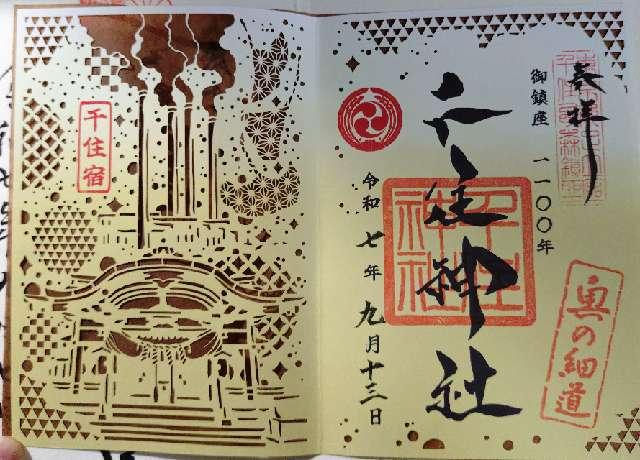 奉拝
御鎮座 一一〇〇年
千住神社
千住神社
令和七年九月十三日
奥の細道
千住宿